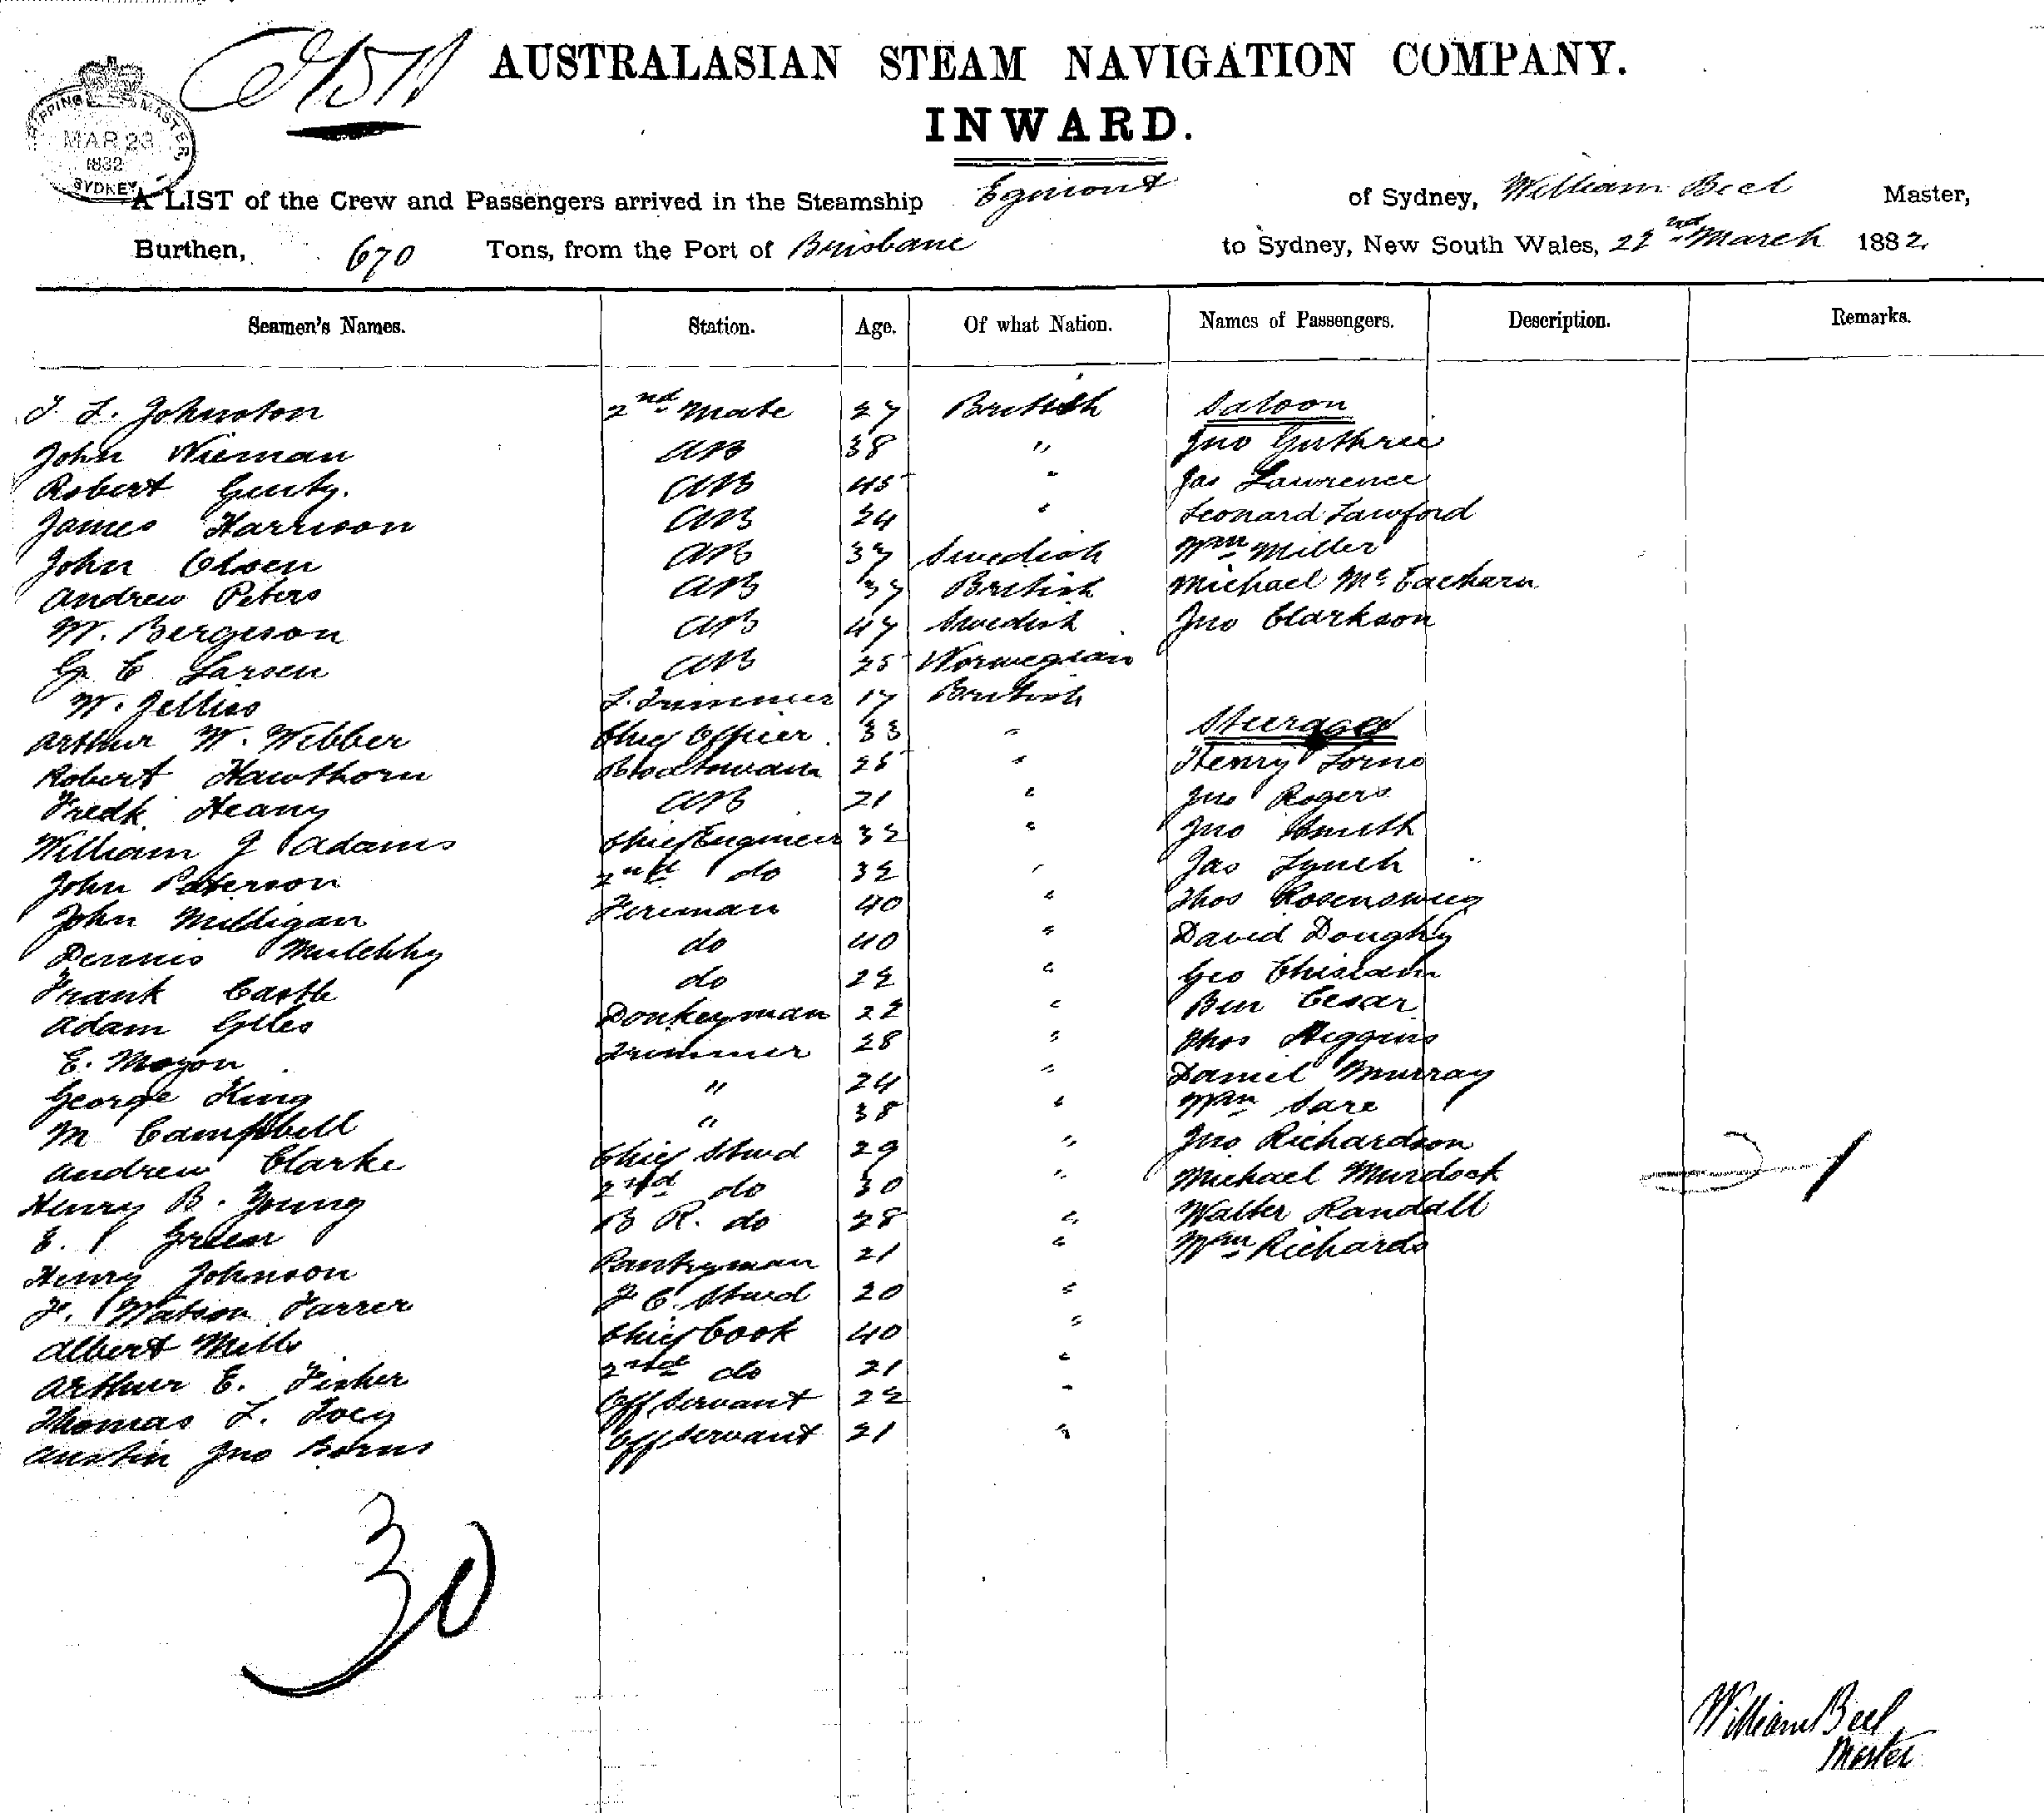 AUSTRALASIAN STEAM NAVIGATION COMPANY.
INWARD.
SHIPPING MASTER
MAR 23
1882
SYDNEY
A LIST of the Crew and Passengers arrived in the Steamship Egmont of Sydney, William Beel Master,
Burthen, 670 Tons, from the Port of Brisbane to Sydney, New South Wales, 22nd March 1882
Seamen's Names. Station. Age. Of what Nation. Names of Passengers. Description. Remarks.
J. L. Johnston 2nd Mate 27 British Saloon
John Nieman AB 38 " Jno Guthrie
Robert Genty. AB 45 " Jas Lawrence
James Harrison AB 24 " Leonard Lawford
John Olsen AB 37 Swedish Wm Miller
Andrew Peters AB 37 British Michael Mc Eacharn
W. Bergeson AB 47 Swedish Jno Clarkson
G. E Larsen AB 25 Norwegian
W. Jellies L. Trimmer 17 British
Arthur W. Webber Chief Officer 33 " Steerage
Robert Hawthorn Boatswain 25 " Henry Lorne
Fredk Heany AB 21 " Jno Rogers
William J Adams Chief Engineer 32 " Jno Smith
John Paterson 2nd do 32 " Jas Lynch
John Milligan Fireman 40 " Thos Rosensweig
Dennis Mulchhy do 40 " David Doughty
Frank Castle do 22 " Geo Chislam
Adam Giles Donkeyman 22 " Ben Cesar
E. Moxon Trimmer 28 " Thos Higgins
George King " 24 " Daniel Murray
M Campbell " 38 " Wm Sare
Andrew Clarke Chief Stwd 29 " Jno Richardson
Henry B. Young 2nd do 30 " Michael Murdock
E. Green B R. do 28 " Walter Randall
Henry Johnson Pantryman 21 " Wm Richards
F. Watson Farrer F C. Stwd 20 "
Albert Mills Chief Cook 40 "
Arthur E. Fisher 2nd do 21 "
Thomas L. Foey Off Servant 22 "
Austin Jno Burns Off Servant 21 "
30
William Beel
Master